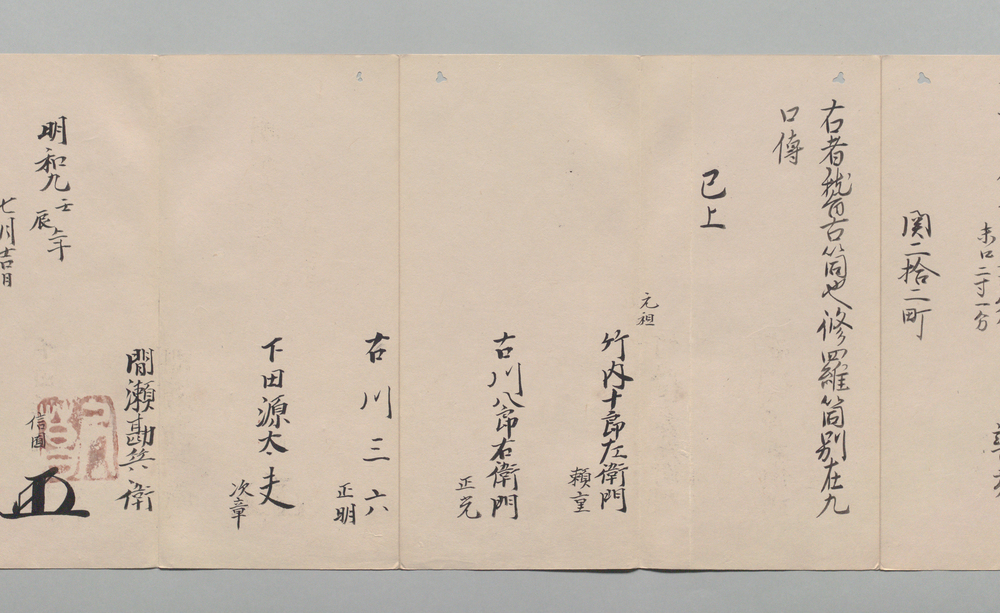 未口二寸一分
関二拾二町
右者稽古筒也修羅筒別在九
口傳
已上
元祖
竹内十郎左衛門
頼重
古川八郎右衛門
正光
古川三六
正明
下田源太夫
次章
間瀬勘兵衛
信圓
明和九壬辰年
七月吉日